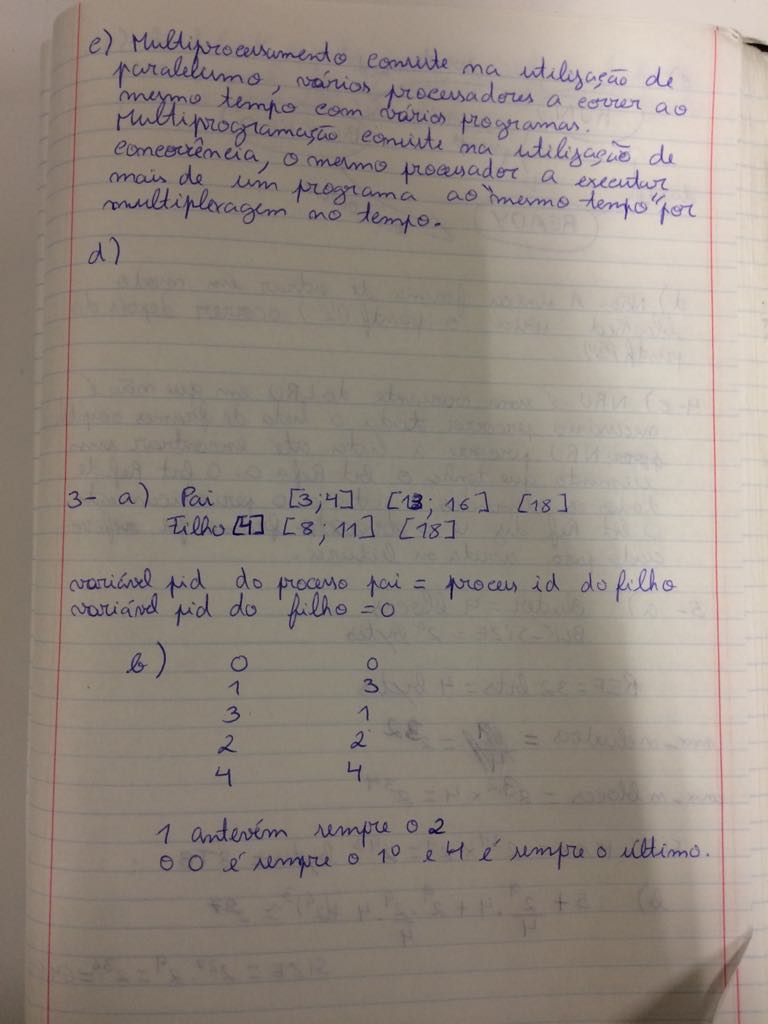 c) Multiprocessamento consiste na utilização de
paralelismo, vários processadores a correr ao
mesmo tempo com vários programas.
Multiprogramação consiste na utilização de
concorrência, o mesmo processador a executar
mais de um programa ao "mesmo tempo" por
multiplexagem no tempo.
d)
3- a) Pai [3;4] [13; 16] [18]
Filho [4] [8; 11] [18]
variável pid do processo pai = process id do filho
variável pid do filho = 0
b) 0 0
1 3
3 1
2 2
4 4
1 antevém sempre o 2
o 0 é sempre o 1º e 4 é sempre o último.